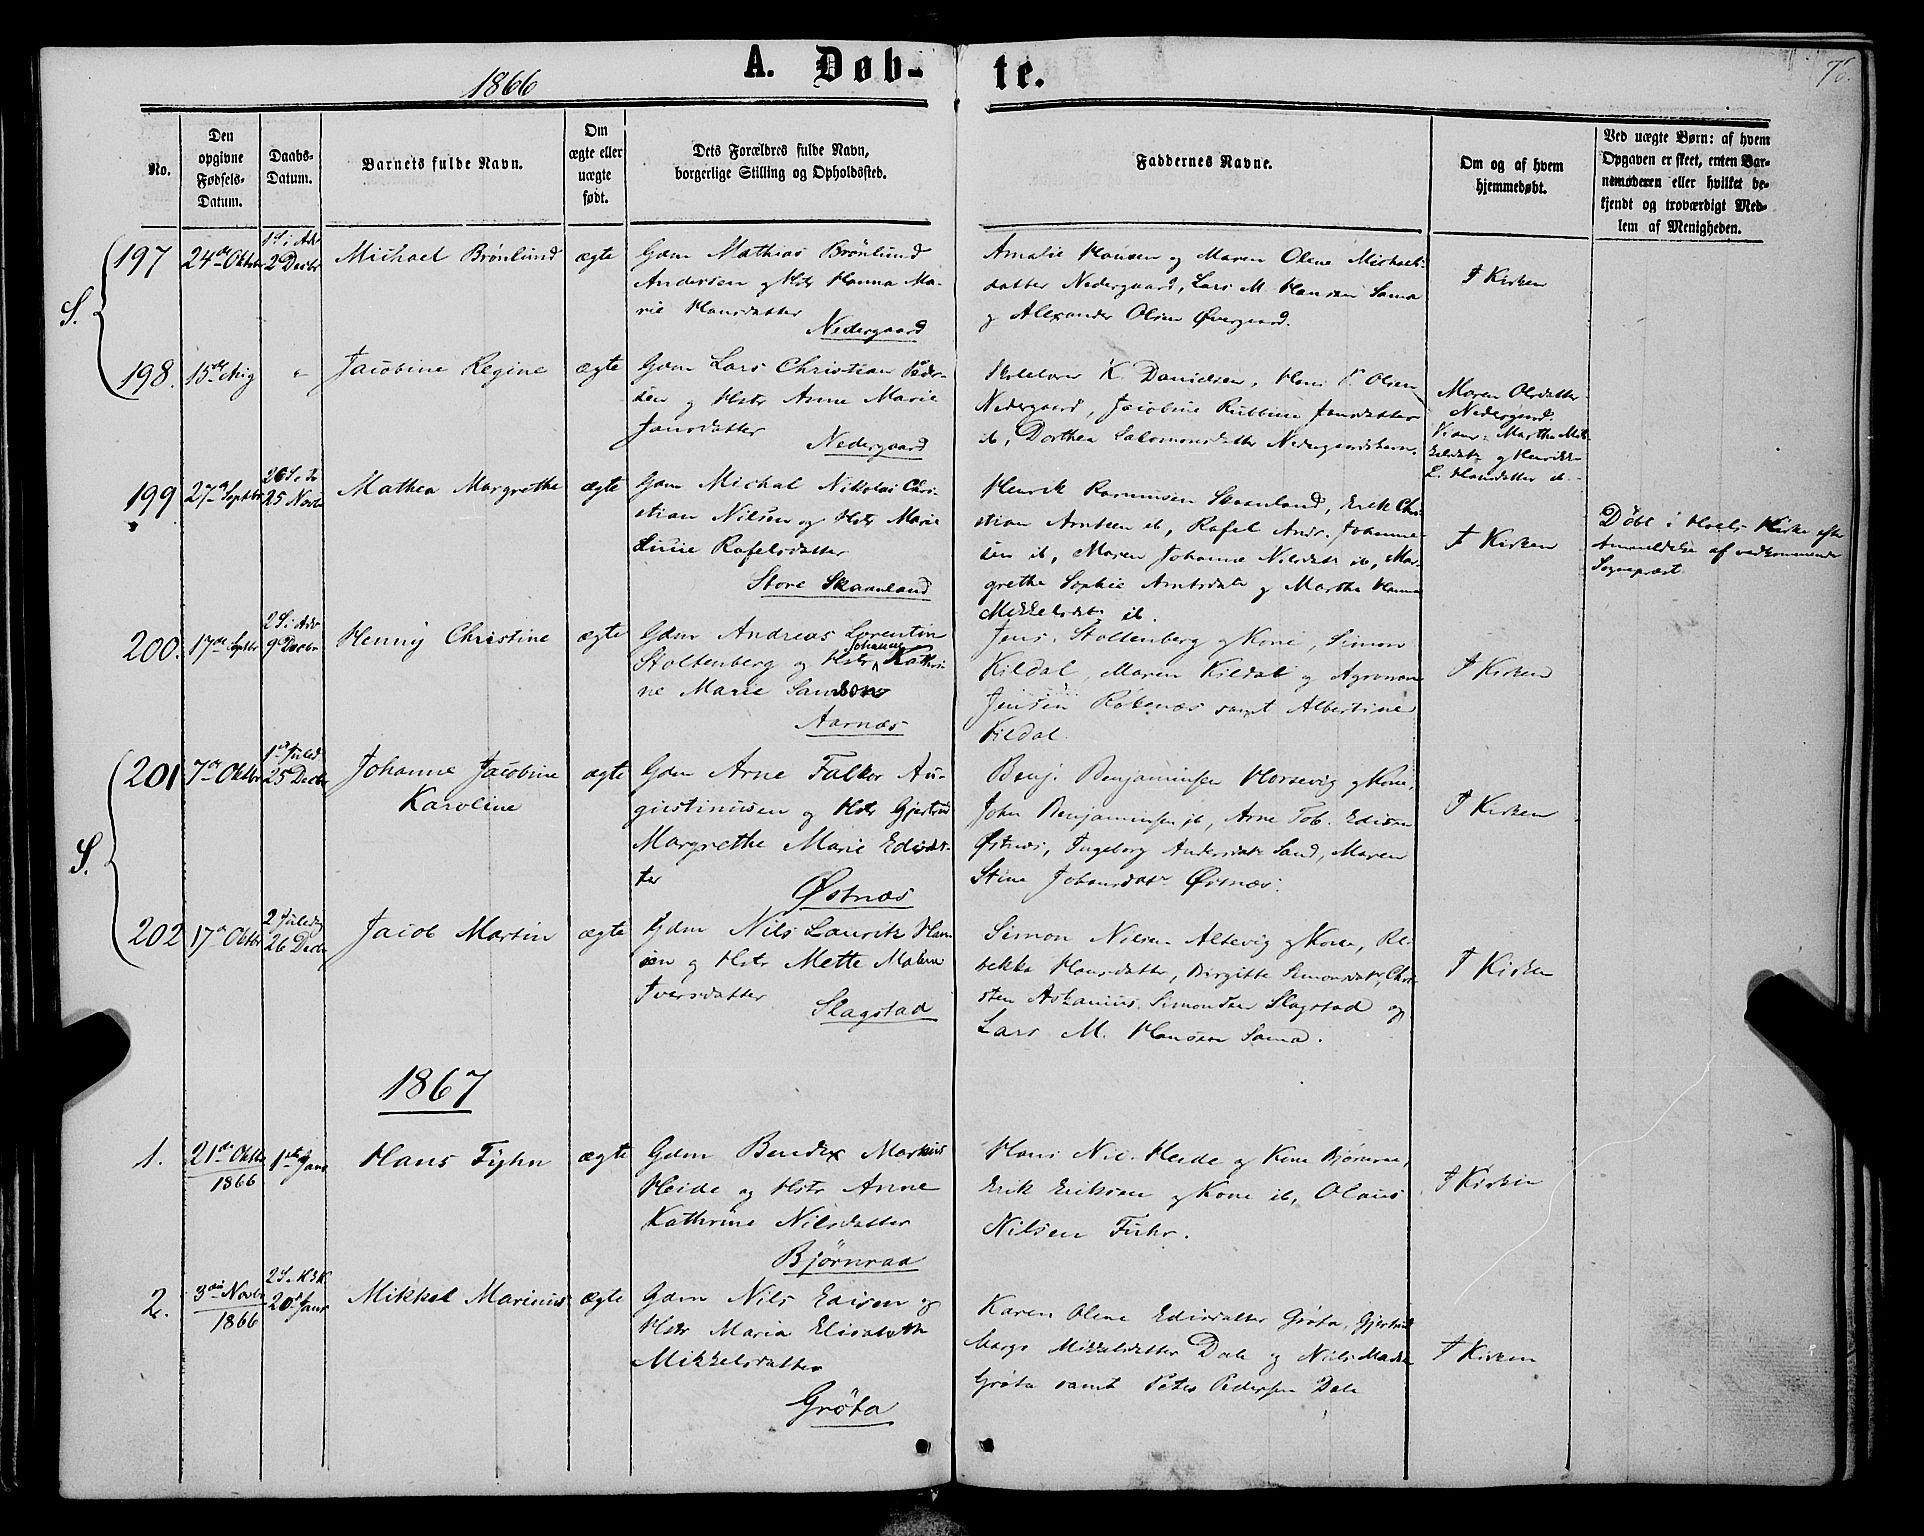 1866
A. Døb-
te.
No.
Den
opgivne
Fødsels-
Datum.
Daabs-
Datum.
Barnets fulde Navn.
Om
ægte eller
uægte
født.
Dets Forældres fulde Navn,
borgerlige Stilling og Opholdssted.
Faddernes Navne.
Om og af hvem
hjemmedøbt.
Ved uægte Børn: af hvem
Opgaven er skeet, enten Bar-
nemoderen eller hvilket be-
kjendt og troværdigt Med-
lem af Menigheden.
S.
197
24de Oktbr
1 S. i Adv
2 Decbr
Michael Brönlund
ægte
Gdm Mathias Brönlund
Andersen og Hstr Hanna Ma-
rie Hansdatter
Nedergaard
Amalie Hansen og Maren Olene Michaels-
datter Nedergaard, Lars M. Hansen Sama
og Alexander Olsen Øvergaard.
I Kirken
198.
15de Aug
Jacobine Regine
ægte
Gdm Lars Christian Peder-
sen og Hstr Anne Marie
Jansdatter
Nedergaard
K. Danielsen, Hans P. Olsen
Nedergaard, Jacobine Jansdatter
ib, Dorthea Salomonsdatter
Maren Olsdatter
Nedergaard.
Martha Mik-
L. Hansdatter ib.
199
27de Septbr
26 S. e. Tr
25 Novbr
Mathea Margrethe
ægte
Gdm Michal Nikolai Chri-
stian Nilsen og Hstr Marie
Rafelsdatter
Store Skaanland
Henrik Rasmussen Skaanland, Erik Chri-
stian Arntsen ib, Rafel Andr. Johanne-
sen ib, Maren Johanne Nilsdatr ib, Mar-
grethe Sophie Arntsdatr og Martha Hanna
Mikkelsdatr ib.
I Kirken
Døbt i Kirke efter
Anmeldelse af vedkommende
Sognepræst
200.
17de Septbr
2 S. i Adv
9de Decbr
Henny Christine
ægte
Gdm Andreas Lorentin
Johanne
Stoltenberg og Hstr Kathri-
ne Marie
Aarnæs
Jens Stoltenberg og Kone, Simon
Kildal, Maren Kildal og Agronom
Jensen Rökenæs samt Albertine
Kildal.
I Kirken
S.
201
7de Oktbr
1ste Juled
25 Decbr
Johanne Jacobine
Karoline
ægte
Gdm Arne Falkor Au-
gustinussen og Hstr Gjertrud
Margrethe Marie Edisdat-
ter
Østnæs
Benj. Benjaminsen og Kone,
John Benjaminsen ib, Arne Tob. Edisen
Østnæs, Ingeborg Andersdatr Sand, Maren
Stine Johansdatr Østnæs.
I Kirken
202
17de Oktbr
2 Juledag
26 Decbr
Jacob Martin
ægte
Gdm Nils Laurits Han-
sen og Hstr Mette Malene
Iversdatter
Slagstad
Simon Nilsen Altevig og Kone, Re-
bekka Hansdatter, Birgitte Simonsdatr, Chri-
sten Askanius Simonsen Slagstad og
Lars M. Hansen Sama.
I Kirken
1867
1.
21de Oktbr
1866
1ste Janr
Hans Fyhn
ægte
Gdm Bendix Markus
Heide og Hstr Anne
Kathrine Nilsdatter
Bjørnraa
Hans Nic. Heide og Kone Bjørnraa,
Erik Eriksen og Kone ib, Olaus
Nilsen Fuhr.
I Kirken
2.
3die Novbr
1866
2 S. e. H3K
20de Janr
Mikkel Marinus
ægte
Gdm Nils Edisen og
Hstr Maria Elisabeth
Mikkelsdatter
Gröta
Karen Olene Edisdatter Gröta, Gjertrud
Margr Mikkelsdatter Dale og Nils
Gröta samt Peter Pedersen Dale
I Kirken